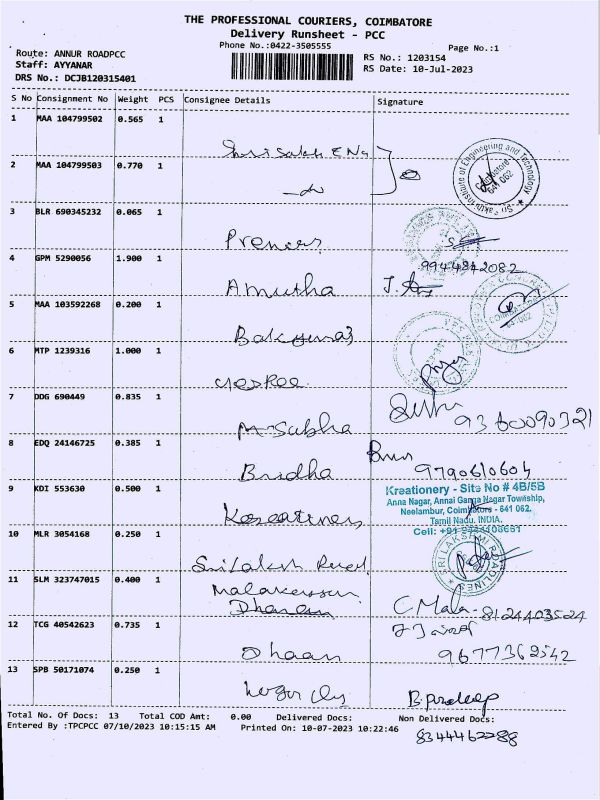 THE PROFESSIONAL COURIERS, COIMBATORE
Delivery Runsheet - PCC
Phone No.:0422-3505555
Page No.:1
Route: ANNUR ROADPCC
Staff: AYYANAR
DRS No.: DCJB120315401
RS No.: 1203154
RS Date: 10-Jul-2023
S No Consignment No Weight PCS Consignee Details Signature
1 MAA 104799502 0.565 1
2 MAA 104799503 0.770 1
Sri Sakthi Institute of Engineering and Technology
Coimbatore 641 062
3 BLR 690345232 0.065 1
4 GPM 5290056 1.900 1
9944842082
Amutha
5 MAA 103592268 0.200 1
6 MTP 1239316 1.000 1
7 DDG 690449 0.835 1
M. Subha 9360090321
8 EDQ 24146725 0.385 1
Bridha 9790610604
9 KDI 553630 0.500 1
Kreationery - Site No # 4B/5B
Anna Nagar, Annai Ganga Nagar Township,
Neelambur, Coimbatore - 641 062.
Tamil Nadu. INDIA.
Cell: +91
10 MLR 3054168 0.250 1
SRI LAKSHMI ROADLINES
11 SLM 323747015 0.400 1
C. Mala 8124403524
12 TCG 40542623 0.735 1
Dhaan 9677362542
13 SPB 50171074 0.250 1
B. Pradeep
Total No. Of Docs: 13 Total COD Amt: 0.00 Delivered Docs: Non Delivered Docs:
Entered By :TPCPCC 07/10/2023 10:15:15 AM Printed On: 10-07-2023 10:22:46
8344462288